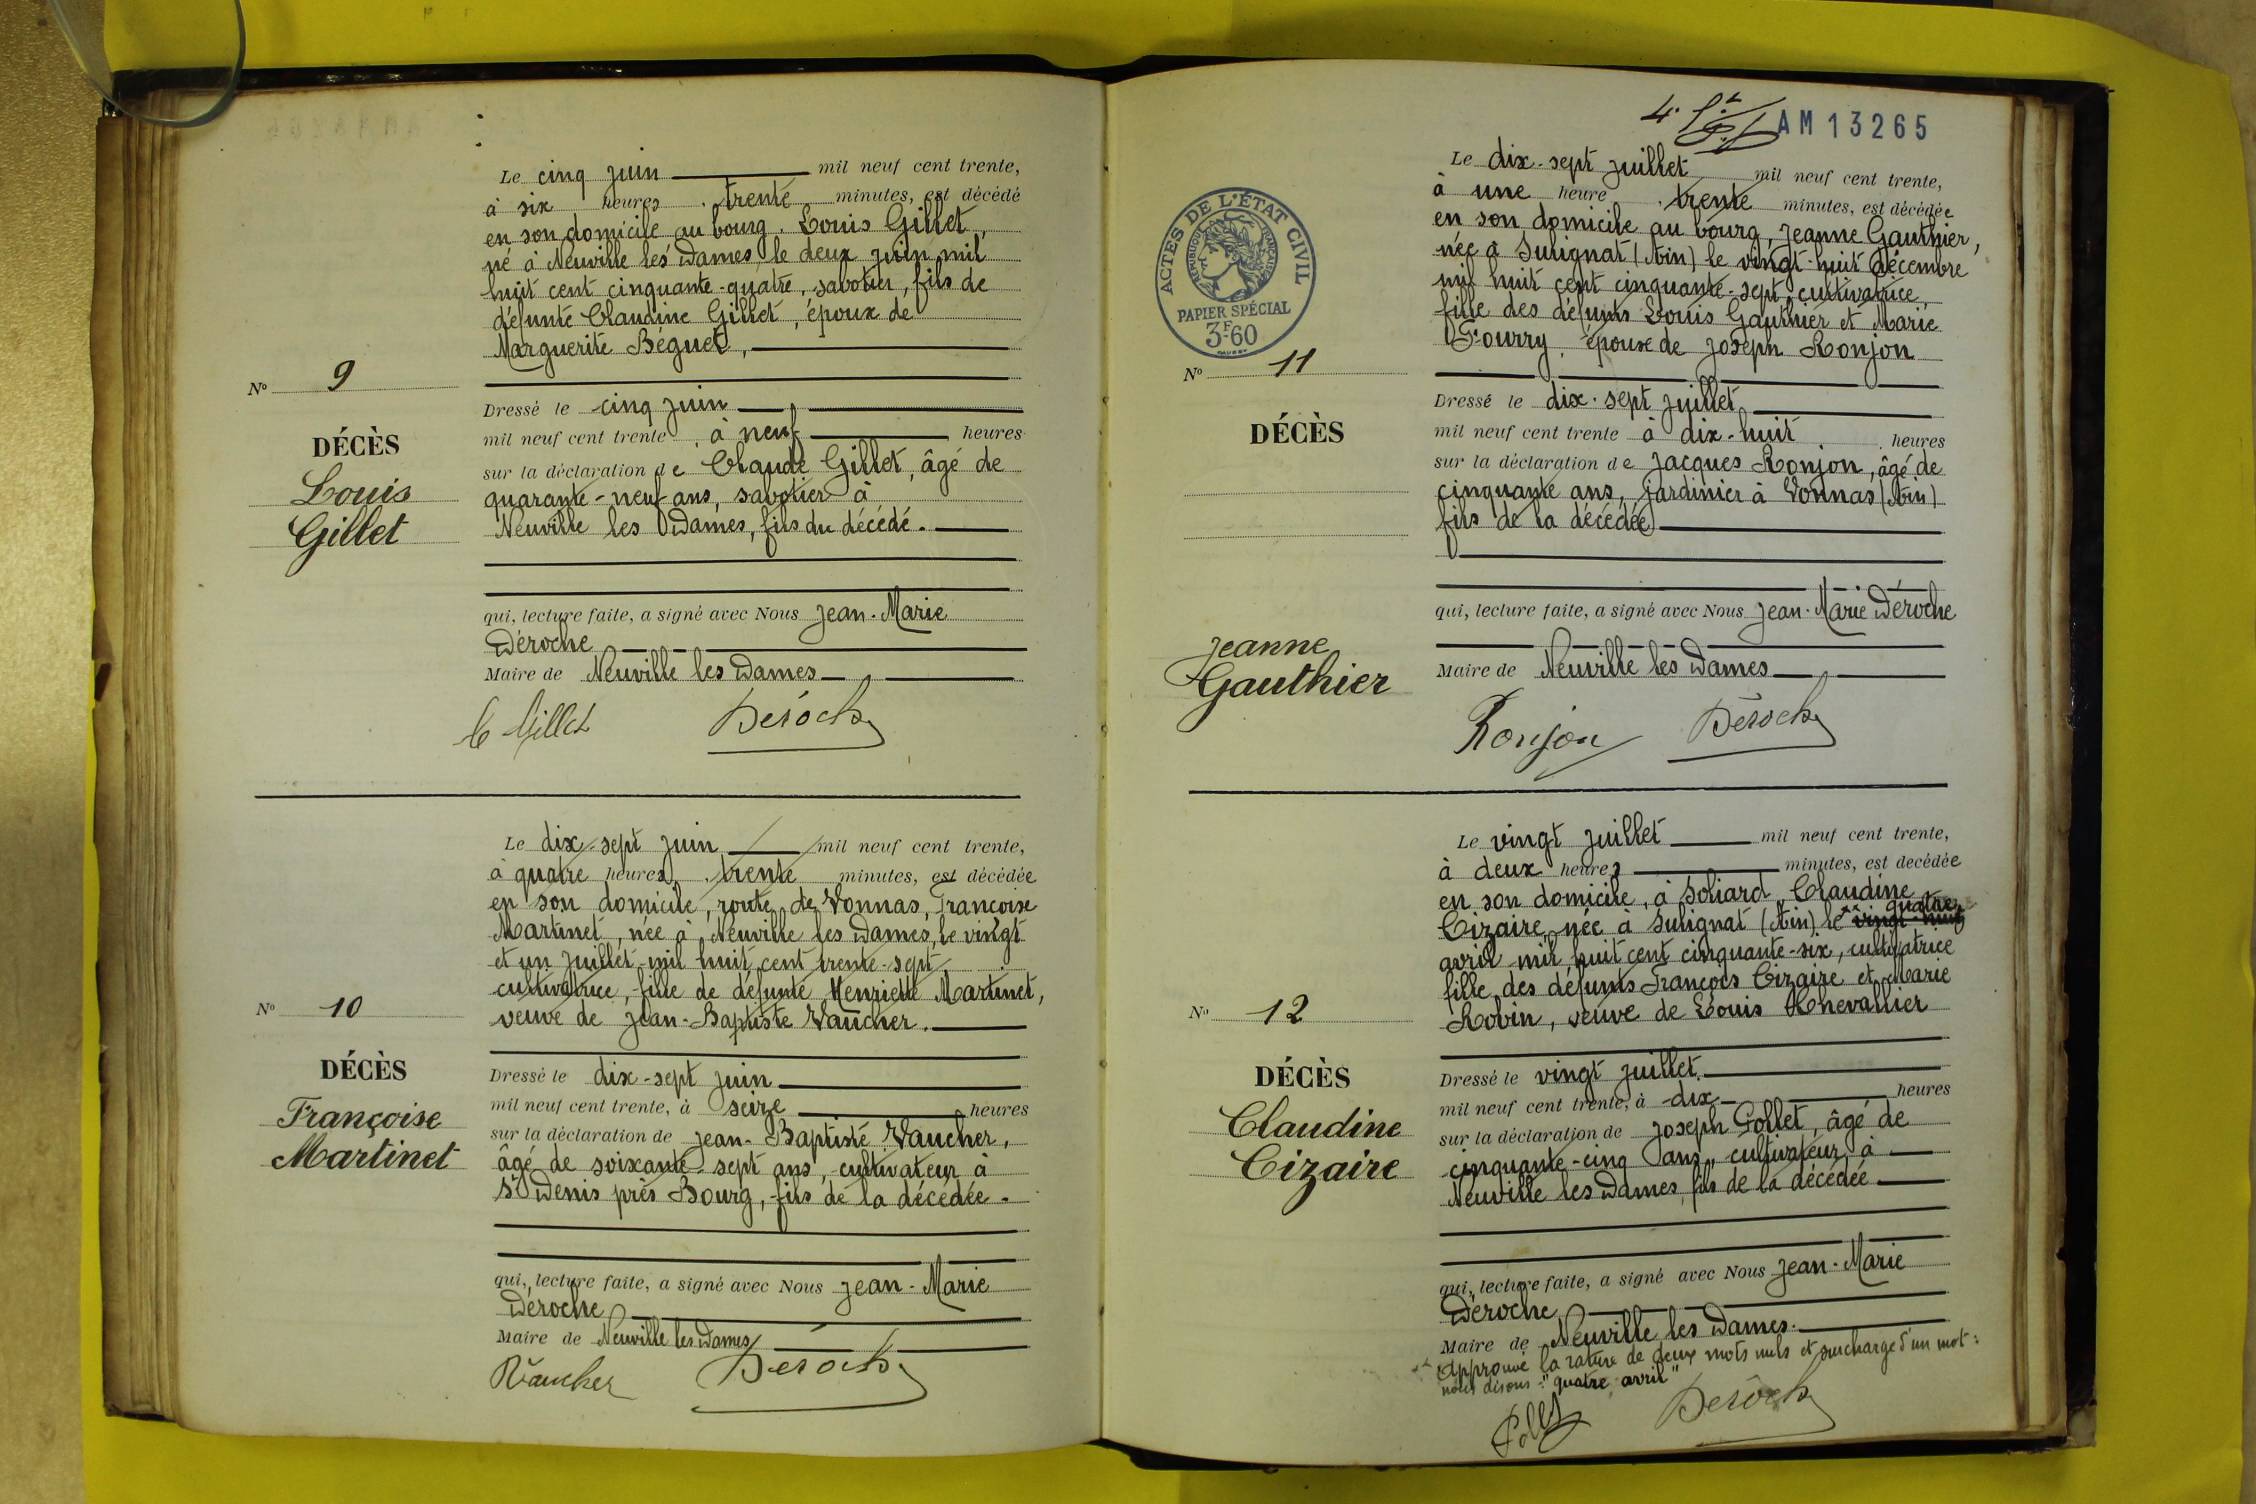 Le cinq juin mil neuf cent trente,
à six heures trente minutes, est décédé
en son domicile au bourg. Louis Gillet,
né à Neuville les Dames, le deux juin mil
huit cent cinquante-quatre, sabotier, fils de
défunte Claudine Gillet, époux de
Marguerite Béguet,
N° 9
DÉCÈS
Louis
Gillet
Dressé le cinq juin
mil neuf cent trente, à neuf heures
sur la déclaration de Claude Gillet, âgé de
quarante-neuf ans, sabotier à
Neuville les Dames, fils du décédé.
qui, lecture faite, a signé avec Nous Jean-Marie
Déroche
Maire de Neuville les Dames
C Gillet Déroche
Le dix-sept juin mil neuf cent trente,
à quatre heures, trente minutes, est décédée
en son domicile, route de Vonnas, Françoise
Martinet, née à Neuville les Dames, le vingt
et un juillet mil huit cent trente-sept
cultivatrice, fille de défunte Henriette Martinet,
veuve de Jean-Baptiste Vaucher.
N° 10
DÉCÈS
Françoise
Martinet
Dressé le dix-sept juin
mil neuf cent trente, à seize heures
sur la déclaration de Jean-Baptiste Vaucher,
âgé de soixante-sept ans, cultivateur à
St Denis près Bourg, fils de la décédée.
qui, lecture faite, a signé avec Nous Jean-Marie
Déroche
Maire de Neuville les Dames
Vaucher Déroche
AM13265
ACTES DE L'ÉTAT CIVIL
RÉPUBLIQUE FRANÇAISE
PAPIER SPÉCIAL
3F60
Le dix-sept juillet mil neuf cent trente,
à une heure trente minutes, est décédée
en son domicile au bourg, Jeanne Gauthier,
née à Sulignat (Ain) le vingt-huit décembre
mil huit cent cinquante-sept, cultivatrice,
fille des défunts Louis Gauthier et Marie
Fourry, épouse de Joseph Ronjon
N° 11
DÉCÈS
Jeanne
Gauthier
Dressé le dix-sept juillet
mil neuf cent trente à dix-huit heures
sur la déclaration de Jacques Ronjon, âgé de
cinquante ans, jardinier à Vonnas (Ain)
fils de la décédée
qui, lecture faite, a signé avec Nous Jean-Marie Déroche
Maire de Neuville les Dames
Ronjon Déroche
Le vingt juillet mil neuf cent trente,
à deux heures minutes, est decédée
en son domicile, à Soliard, Claudine
Cizaire, née à Sulignat (Ain) le vingt-huit quatre
avril mil huit cent cinquante-six, cultivatrice
fille des défunts François Cizaire et Marie
Robin, veuve de Louis Chevallier
N° 12
DÉCÈS
Claudine
Cizaire
Dressé le vingt juillet
mil neuf cent trente, à dix heures
sur la déclaration de Joseph Pollet, âgé de
cinquante-cinq ans, cultivateur à
Neuville les Dames, fils de la décédée
qui, lecture faite, a signé avec Nous Jean-Marie
Déroche
Maire de Neuville les Dames.
Approuvé la rature de deux mots nuls et surcharge d'un mot:
nous disons: "quatre avril"
Déroche